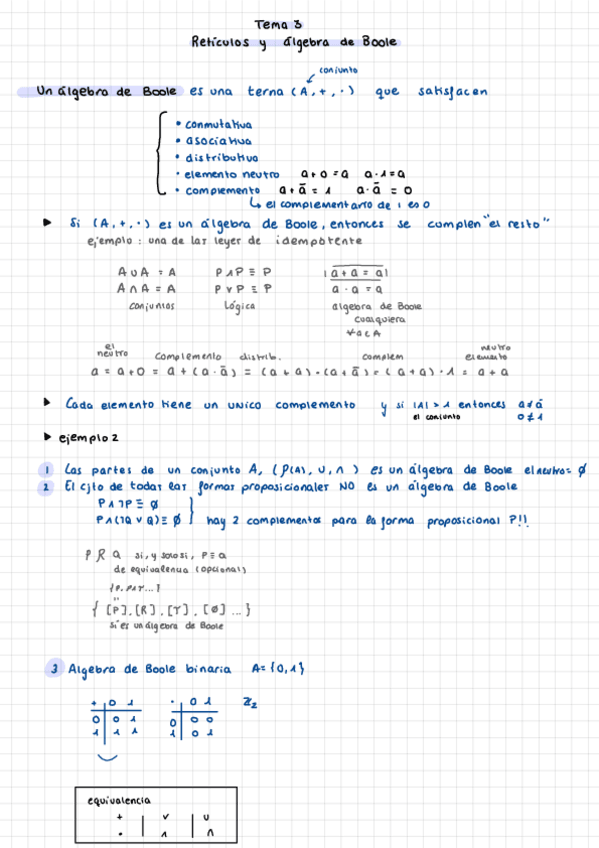 Tema 3
Retículos y álgebra de Boole
conjunto
Un álgebra de Boole es una terna (A, +, ·) que satisfacen
• conmutativa
• asociativa
• distributivo
• elemento neutro a+0=a a·1=a
• complemento a+ā=1 a·ā=0
↳ el complementario de 1 es 0
▶ Si (A, +, ·) es un álgebra de Boole, entonces se cumplen "el resto"
ejemplo : una de las leyes de idempotente
A∪A = A P∧P ≡ P |a+a = a|
A∩A = A P∨P ≡ P a·a = a
conjuntos lógica álgebra de Boole
cualquiera
∀a∈A
el neutro complemento distrib. complem neutro elemento
a = a+0 = a+(a·ā) = (a+a)·(a+ā) = (a+a)·1 = a+a
▶ Cada elemento tiene un unico complemento y si |A|>1 entonces a≠ā
el conjunto 0≠1
▶ ejemplo 2
1 Las partes de un conjunto A, (P(A), ∪, ∩) es un álgebra de Boole el neutro= ∅
2 El cjto de todas las formas proposicionales NO es un álgebra de Boole
P∧¬P ≡ ∅
P∧(¬Q∨Q)≡ ∅ hay 2 complementos para la forma proposicional P!!
P R Q si, y solo si, P≡Q
de equivalencia (opcional)
{P, P∧T...}
"
{ [P], [R], [T], [∅] ... }
Si es un álgebra de Boole
3 Algebra de Boole binaria A={0,1}
+ 0 1 · 0 1 ℤ₂
0 0 1 0 0 0
1 1 1 1 0 1
equivalencia
+ | ∨ | ∪
· | ∧ | ∩